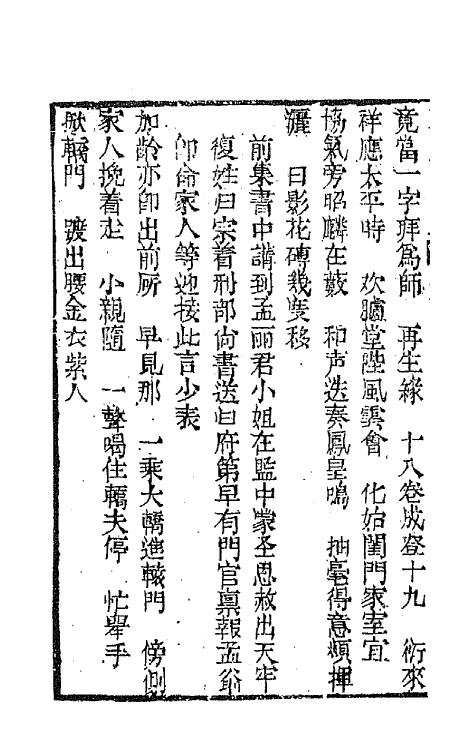 竟當一字拜為師　再生緣　十八卷成登十九　衍來
祥應太平時　欢臚堂陛風雲會　化始閨門家室宜
協氣旁昭麟在藪　和声迭奏鳳皇鳴　抽毫得意頻揮
灑　日影花磚幾度移
前集書中講到孟丽君小姐在監中蒙圣恩赦出天牢
復姓归宗着刑部尚書送归府第早有門官禀報孟翁
即命家人等迎接此言少表
加齡亦即出前所　早見那　一乗大轎進轅門　傍側
家人挽着走　小親隨　一聲喝住轎夫停　忙舉手
掀轎門　踱出腰金衣紫人